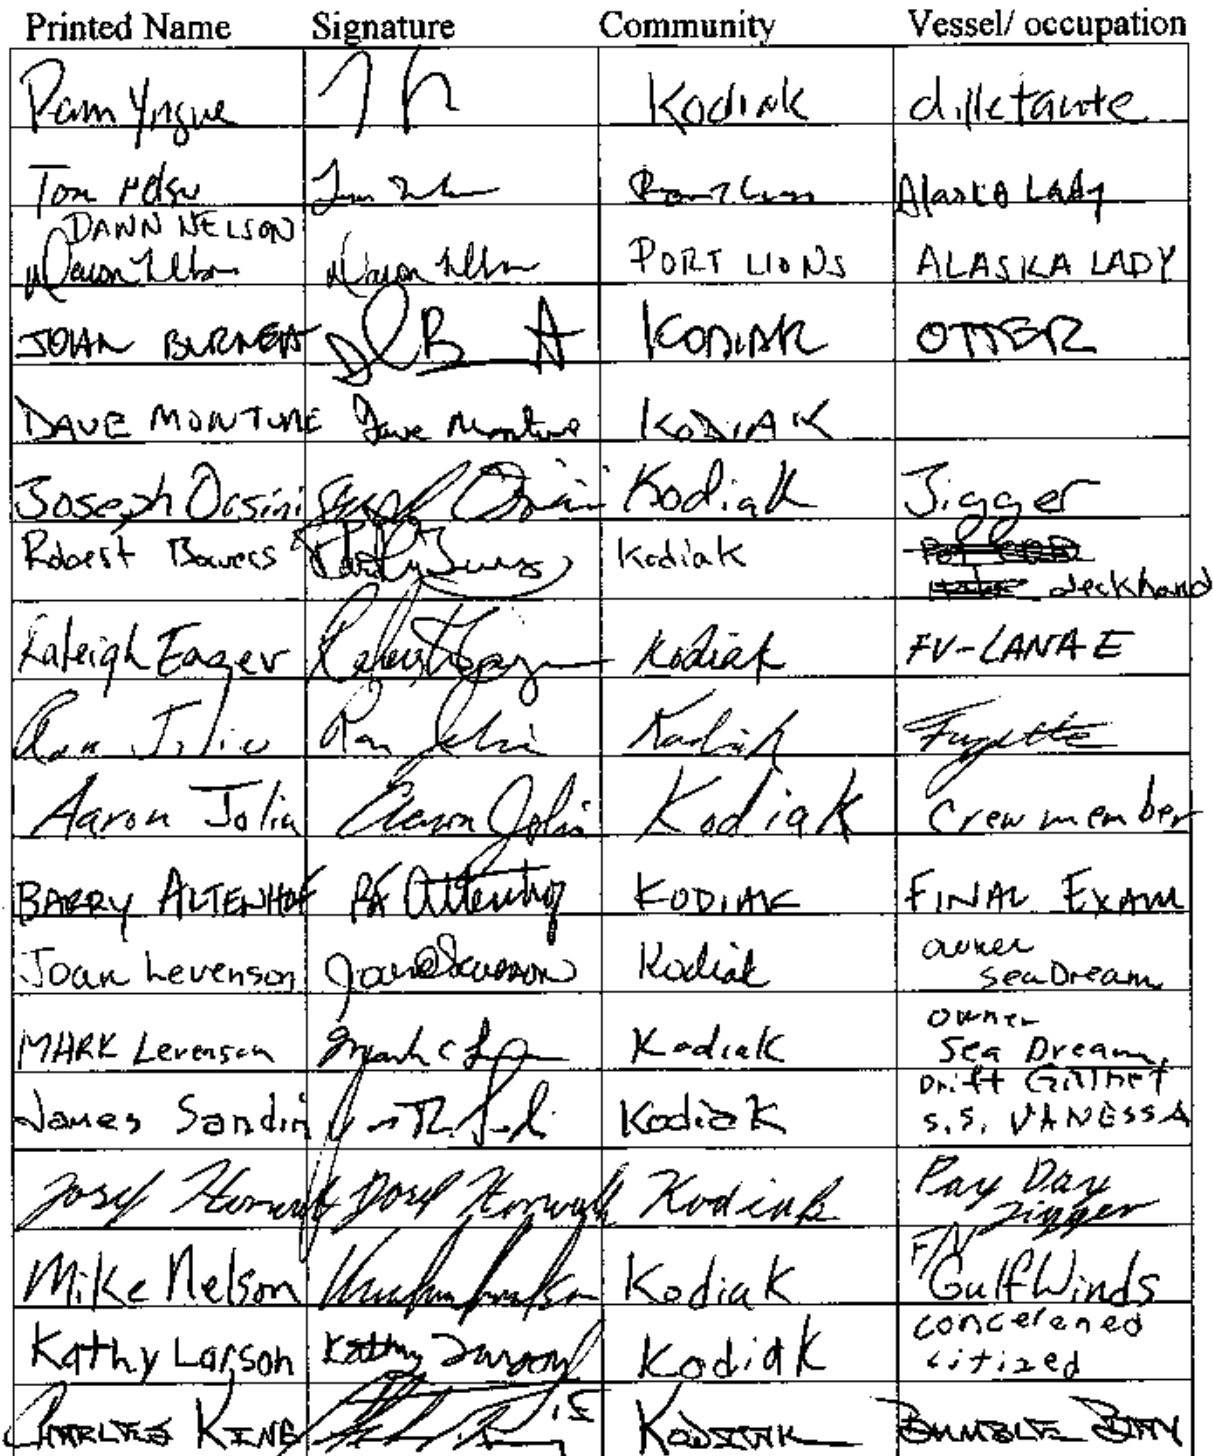 Printed Name Signature Community Vessel/ occupation
Pam Kodiak dilletante
Tom Alaska Lady
DANN NELSON
PORT LIONS ALASKA LADY
JOHN BURNETT Kodiak OTTER
DAVE MONTURE Dave Monture KODIAK
Joseph Orsini Joseph Orsini Kodiak Jigger
Robert Bowers Kodiak
deckhand
Raleigh Eager Kodiak FV-LANA E
Ron Jolin Ron Jolin Kodiak
Aaron Jolin Aaron Jolin Kodiak Crewmember
BARRY ALTENHOF BA Altenhof KODIAK FINAL EXAM
Joan Levenson Joan Levenson Kodiak owner
sea Dream
MARK Levenson Mark C Kodiak owner
Sea Dream
James Sandin Kodiak Drift Gillnet
S.S. VANESSA
Josef Horwath Josef Horwath Kodiak Pay Day
Jigger
Mike Nelson Kodiak F/V
Gulf Winds
Kathy Larson Kathy Larson Kodiak concerened
citized
CHARLES KING KODIAK BUMBLE BAY